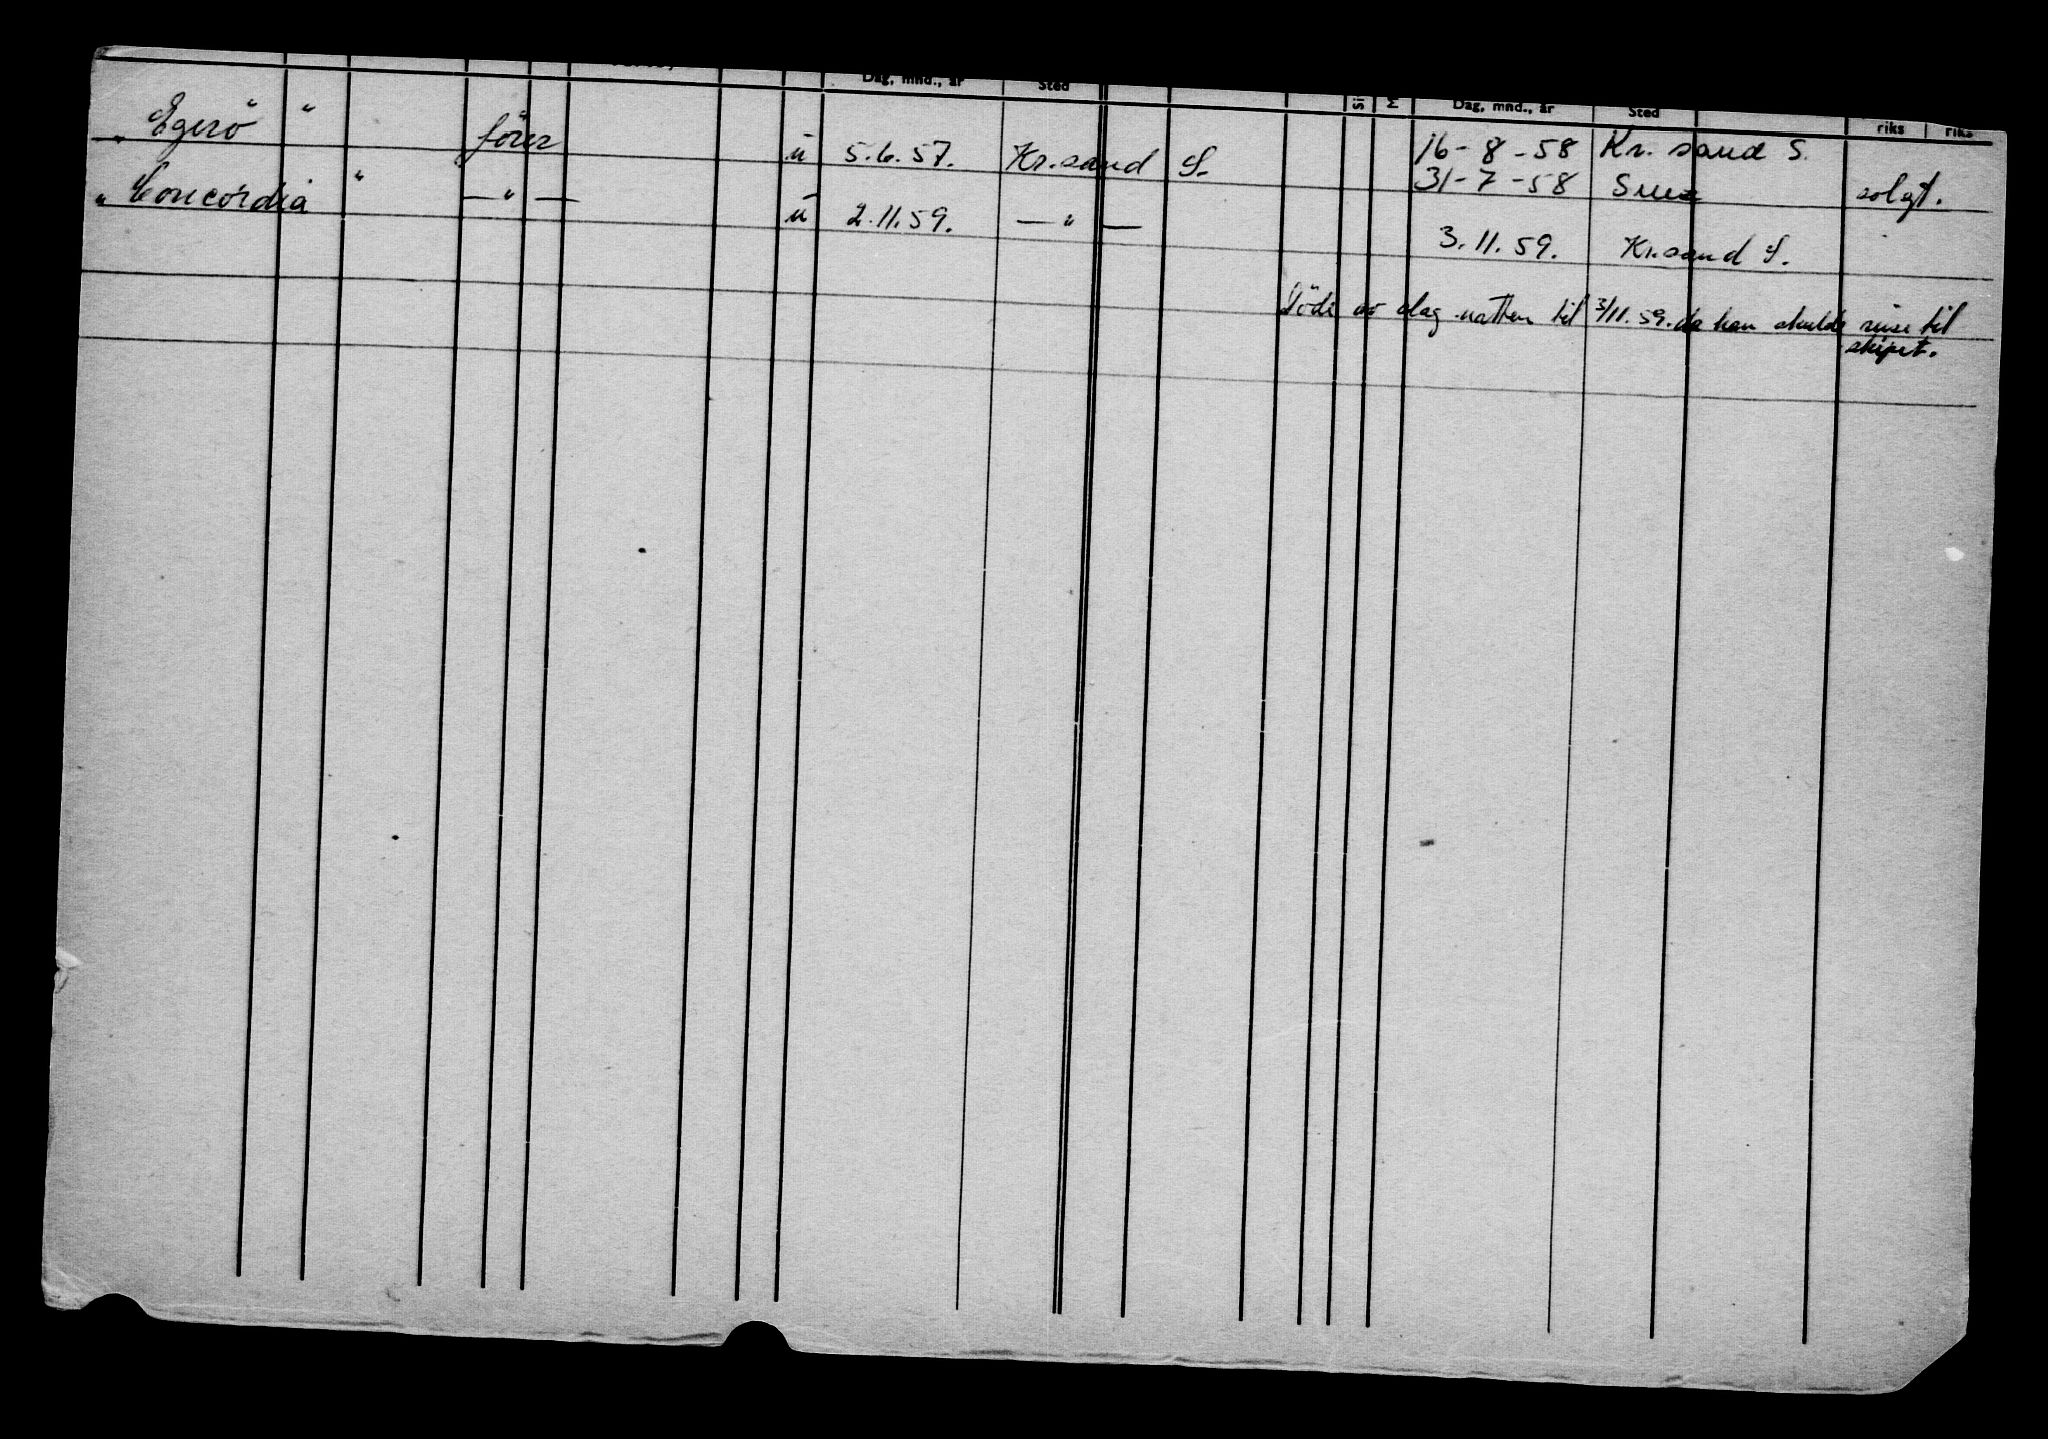 Dag, mnd., år Sted Dag, mnd., år Sted riks riks
"Egerö" förer ü 5.6.57. Kr.sand S. 16-8-58 Kr. sand S.
31-7-58 Suez solgt.
"Concordia" — " — ü 2.11.59. — " — 3.11.59. Kr.sand S.
Döde av slag natten til 3/11.59. da han skulde reise til
skipet.